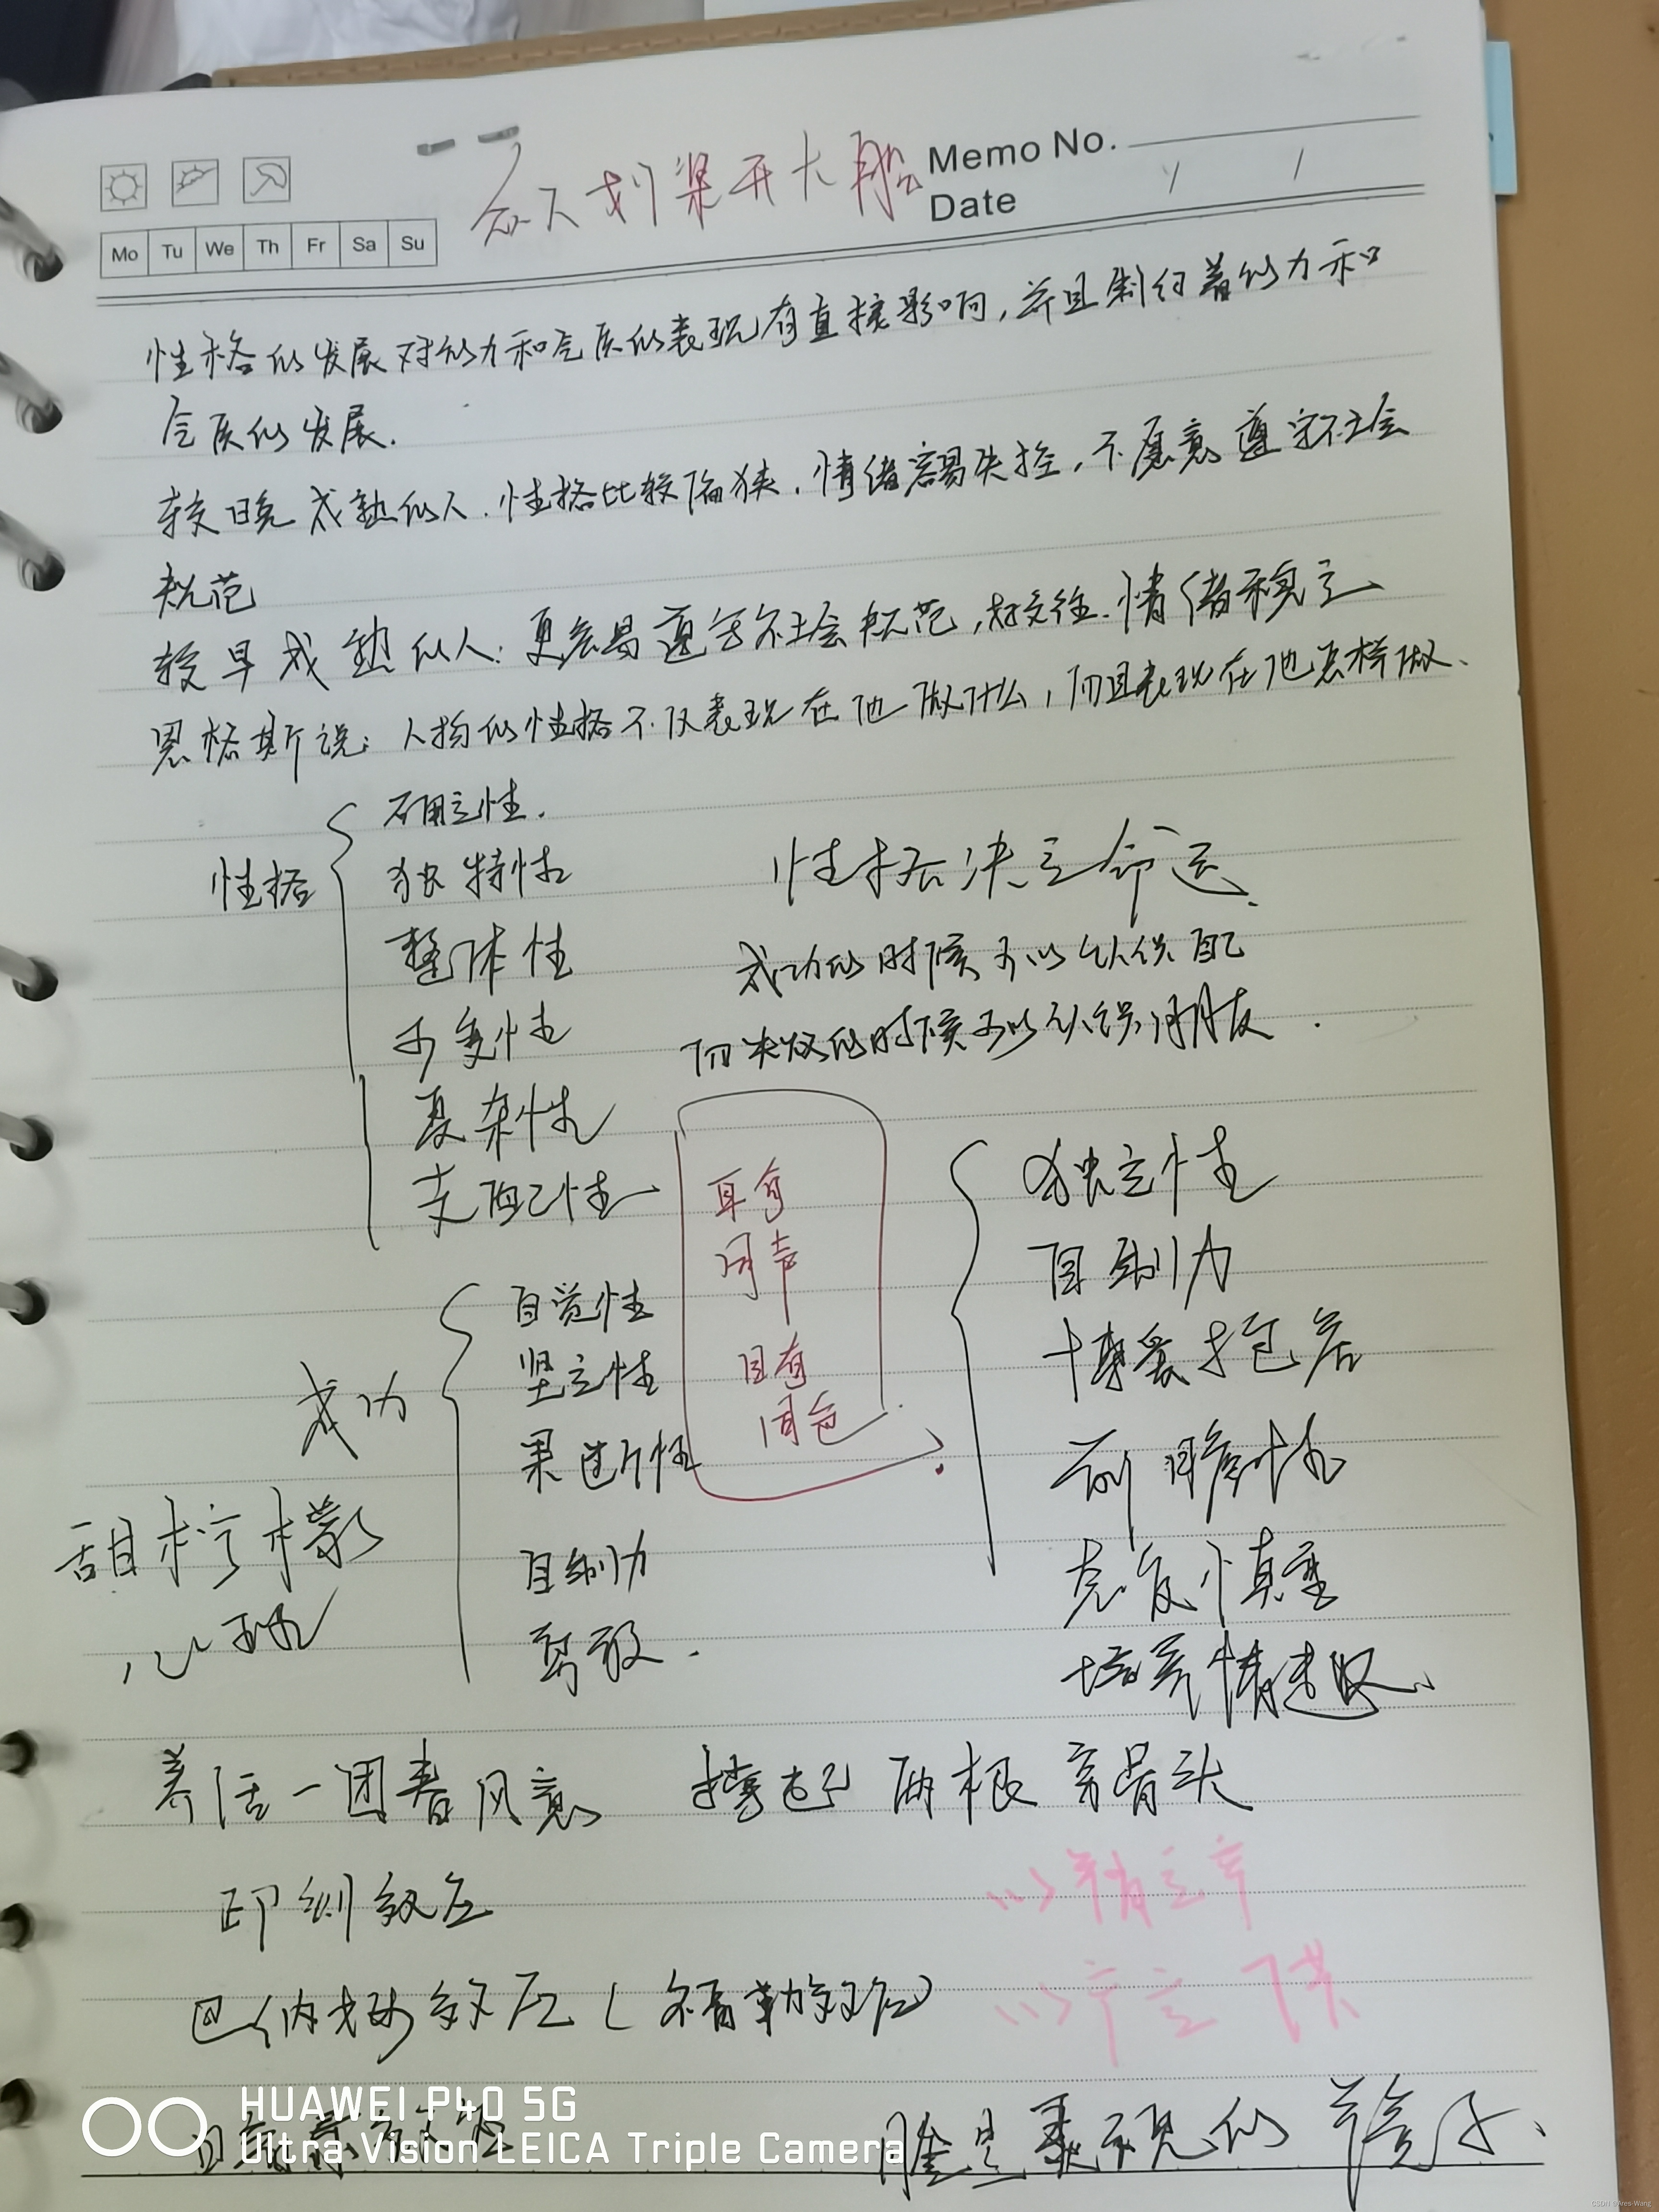 众人划桨开大船
Memo No.
Date
Mo Tu We Th Fr Sa Su
性格的发展对能力和气质的表现有直接影响,并且制约着能力和
气质的发展.
较晚成熟的人.性格比较偏狭.情绪容易失控,不愿意遵守社会
规范
较早成熟的人:更容易遵守社会规范,好交往.情绪稳定
恩格斯说:人物的性格不仅表现在他做什么,而且表现在他怎样做、
性格
确定性.
独特性
整体性
可变性
复杂性
支配性
性格决定命运.
成功的时候可以认识自己
而失败的时候可以认识朋友.
耳旁
闻声
目旁
闻色
成功
自觉性
坚定性
果断性
自制力
勇敢.
独立性
自制力
博爱包容
前瞻性
克服慎重
培养情趣、
甜柠檬
心理
养活一团春风意 撑起两根穷骨头
印刻效应
巴纳姆效应(福勒效应)
以精立率
以
脸是表现的镜子、
HUAWEI P40 5G
Ultra Vision LEICA Triple Camera
CSDN @Ares-Wang